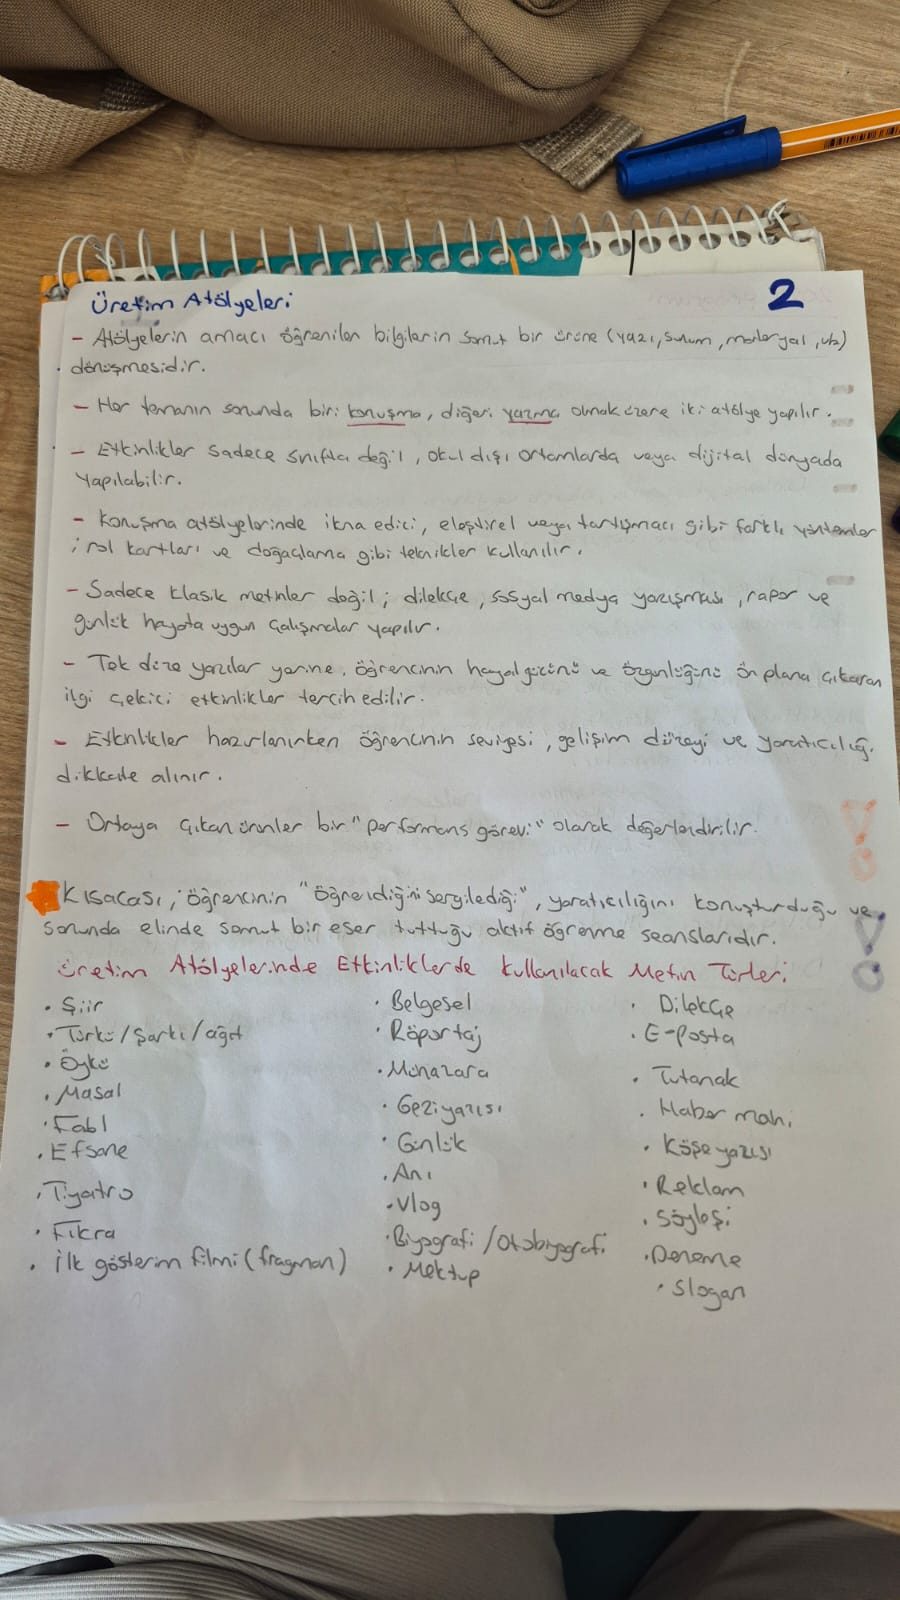 Üretim Atölyeleri
2
- Atölyelerin amacı öğrenilen bilgilerin somut bir ürüne (yazı, sunum, materyal, vb)
dönüşmesidir.
- Her temanın sonunda biri konuşma, diğeri yazma olmak üzere iki atölye yapılır.
- Etkinlikler sadece sınıfta değil, okul dışı ortamlarda veya dijital dünyada
yapılabilir.
- Konuşma atölyelerinde ikna edici, eleştirel veya tartışmacı gibi farklı yöntemler
; rol kartları ve doğaçlama gibi teknikler kullanılır.
- Sadece klasik metinler değil; dilekçe, sosyal medya yazışması, rapor ve
günlük hayata uygun çalışmalar yapılır.
- Tek düze yazılar yerine, öğrencinin hayal gücünü ve özgünlüğünü ön plana çıkaran
ilgi çekici etkinlikler tercih edilir.
- Etkinlikler hazırlanırken öğrencinin seviyesi, gelişim düzeyi ve yaratıcılığı
dikkate alınır.
- Ortaya çıkan ürünler bir "performans görevi" olarak değerlendirilir.
Kısacası; öğrencinin "öğrendiğini sergilediği", yaratıcılığını konuşturduğu ve
sonunda elinde somut bir eser tuttuğu aktif öğrenme seanslarıdır.
Üretim Atölyelerinde Etkinliklerde Kullanılacak Metin Türleri
• Şiir
• Türkü/Şarkı/ağıt
• Öykü
• Masal
• Fabl
• Efsane
• Tiyatro
• Fıkra
• İlk gösterim filmi (fragman)
• Belgesel
• Röportaj
• Münazara
• Gezi yazısı
• Günlük
• Anı
• Vlog
• Biyografi/Otobiyografi
• Mektup
• Dilekçe
• E-posta
• Tutanak
• Haber metni
• Köşe yazısı
• Reklam
• Söyleşi
• Deneme
• Slogan